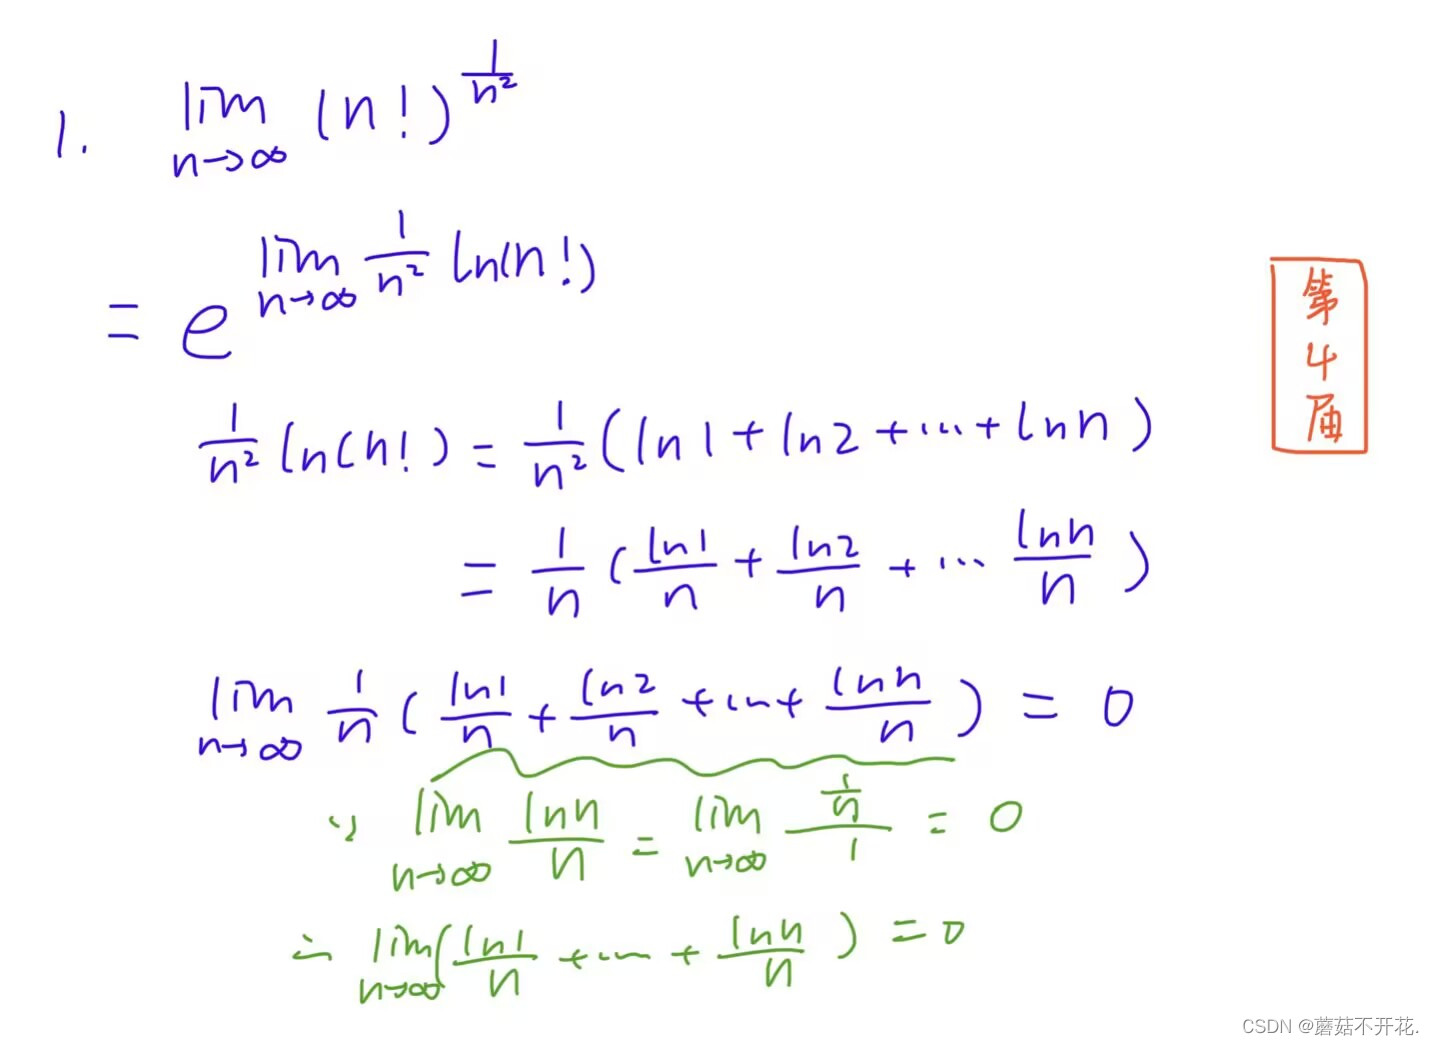 1. lim n→∞ (n!)^(1/n²)
= e^(lim n→∞ 1/n² ln(n!))
第4届
1/n² ln(n!) = 1/n² (ln1 + ln2 + ⋯ + lnn)
= 1/n (ln1/n + ln2/n + ⋯ lnn/n)
lim n→∞ 1/n (ln1/n + ln2/n + ⋯ + lnn/n) = 0
∵ lim n→∞ lnn/n = lim n→∞ (1/n)/1 = 0
∴ lim n→∞ (ln1/n + ⋯ + lnn/n) = 0
CSDN @蘑菇不开花.